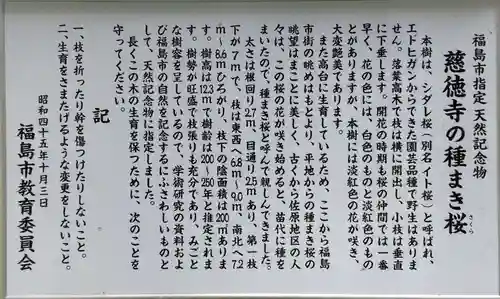 福島市指定 天然記念物
慈徳寺の種まき桜
さくら
本樹は、シダレ桜(別名イト桜)と呼ばれ、
エドヒガンからできた園芸品種で野生はありま
せん。落葉高木で枝は横に開出し、小枝は垂直
に下垂します。開花の時期も桜の仲間では一番
早く、花の色には、白色のものと淡紅色のもの
とがありますが、本樹には淡紅色の花が咲き、
大変艶美であります。
また高台に生育しているため、ここから福島
市街の眺めはもとより、平地からの種まき桜の
眺望はまことに美しく、古くから佐原地区の人
々は、この桜の花が咲き始めると、苗代に種を
まいたので、種まき桜と呼んで親しんできました。
太さは根回り2.7m、目通り2.5mあり、第一枝
下が1.7mで、枝は東西へ6.8m〜9.0m、南北へ7.2
m〜8.6mひろがり、枝下の陰面積は200㎡ありま
す。樹高は12.3mで樹齢は200〜250年と推定されま
す。樹勢が旺盛で枝張りも充分であり、みごと
な樹容を呈しているので、学術研究の資料およ
び福島市の自然を記念するにふさわしいものと
して、天然記念物に指定しました。
長くこの木の生育を保つために、次のことを
守ってください。
記
一、枝を折ったり幹を傷つけたりしないこと。
二、生育をさまたげるような変更をしないこと。
昭和四十五年十月三日
福島市教育委員会